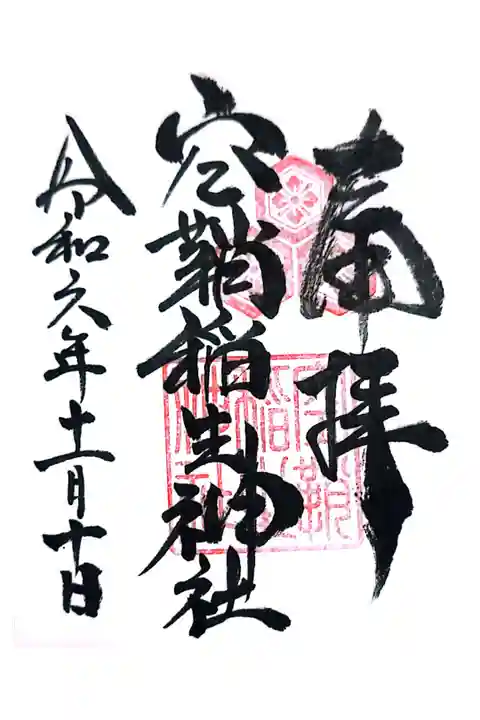 奉拝
空鞘稲生神社
令和六年十一月十日